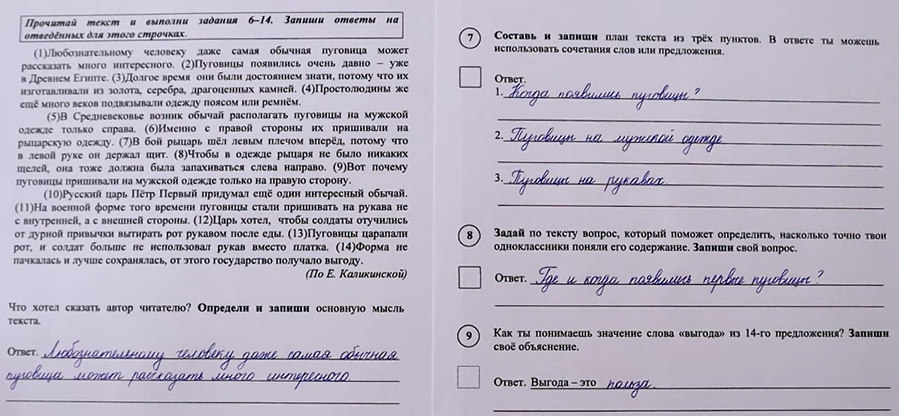 Прочитай текст и выполни задания 6–14. Запиши ответы на
отведённых для этого строчках.
(1)Любознательному человеку даже самая обычная пуговица может
рассказать много интересного. (2)Пуговицы появились очень давно – уже
в Древнем Египте. (3)Долгое время они были достоянием знати, потому что их
изготавливали из золота, серебра, драгоценных камней. (4)Простолюдины же
ещё много веков подвязывали одежду поясом или ремнём.
(5)В Средневековье возник обычай располагать пуговицы на мужской
одежде только справа. (6)Именно с правой стороны их пришивали на
рыцарскую одежду. (7)В бой рыцарь шёл левым плечом вперёд, потому что
в левой руке он держал щит. (8)Чтобы в одежде рыцаря не было никаких
щелей, она тоже должна была запахиваться слева направо. (9)Вот почему
пуговицы пришивали на мужской одежде только на правую сторону.
(10)Русский царь Пётр Первый придумал ещё один интересный обычай.
(11)На военной форме того времени пуговицы стали пришивать на рукава не
с внутренней, а с внешней стороны. (12)Царь хотел, чтобы солдаты отучились
от дурной привычки вытирать рот рукавом после еды. (13)Пуговицы царапали
рот, и солдат больше не использовал рукав вместо платка. (14)Форма не
пачкалась и лучше сохранялась, от этого государство получало выгоду.
(По Е. Каликинской)
Что хотел сказать автор читателю? Определи и запиши основную мысль
текста.
Ответ. Любознательному человеку даже самая обычная
пуговица может рассказать много интересного.
7 Составь и запиши план текста из трёх пунктов. В ответе ты можешь
использовать сочетания слов или предложения.
Ответ.
1. Когда появились пуговицы?
2. Пуговицы на мужской одежде
3. Пуговицы на рукавах.
8 Задай по тексту вопрос, который поможет определить, насколько точно твои
одноклассники поняли его содержание. Запиши свой вопрос.
Ответ. Где и когда появились первые пуговицы?
9 Как ты понимаешь значение слова «выгода» из 14-го предложения? Запиши
своё объяснение.
Ответ. Выгода – это польза.